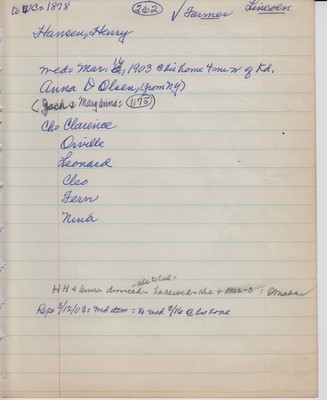 to WCo 1878 262 ✓Farmer Lincoln
Hansen, Henry
med: Mar. 16, 1903 @ his home 4 mi w of Kd,
Anna D Olsen, (from NY)
(Jack & Mary Wina= 1175)
Chs Clarence
Orville
Leonard
Cleo
Fern
Nina
HH & Anna divorced - he + 1922-3 = Omaha
Reps 3/12/03: Med = to med 3/16 @ his home